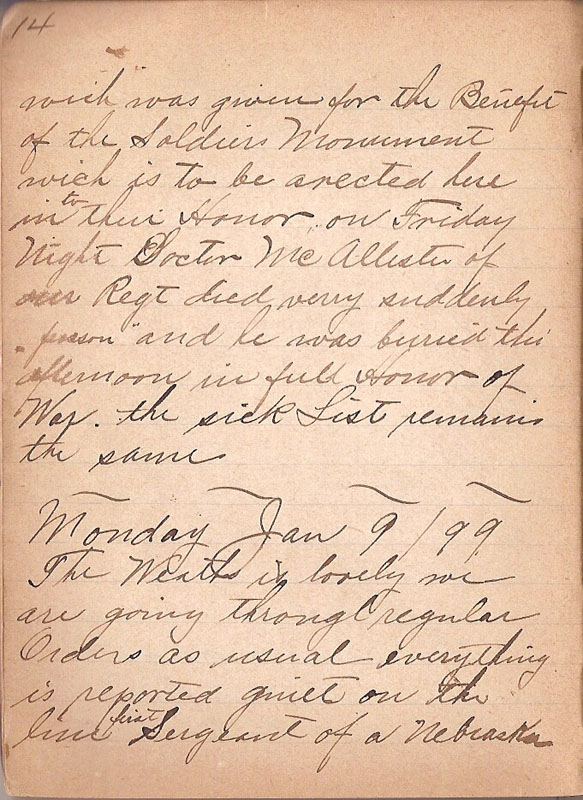 14
wich was given for the Benefit
of the Soldiers Monument
wich is to be arected here
in to their Honor on Friday
Night Doctor McAllister of
our Regt died verry suddenly
and he was buried this
afternoon in full Honor of
War. the sick List remains
the same
Monday Jan 9 / 99
The Weather is lovely we
are going through regular
Orders as usual everything
is reported quiet on the
line first Sergeant of a Nebraska